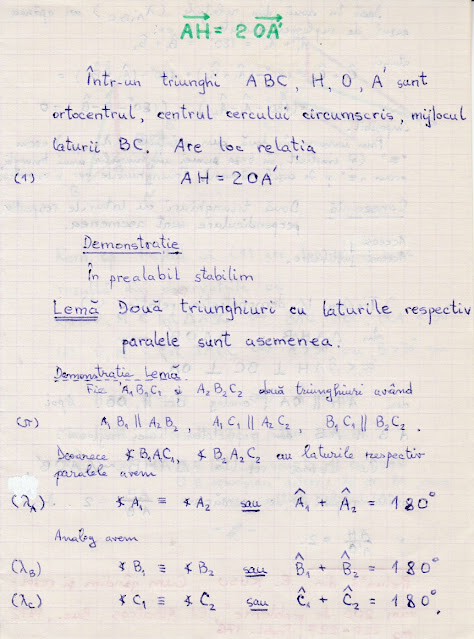 AH = 2OA'
Într-un triunghi ABC, H, O, A' sunt
ortocentrul, centrul cercului circumscris, mijlocul
laturii BC. Are loc relația
(1) AH = 2OA'
Demonstrație
În prealabil stabilim
Lemă Două triunghiuri cu laturile respectiv
paralele sunt asemenea.
Demonstrație Lemă.
Fie A₁B₁C₁ și A₂B₂C₂ două triunghiuri având
A₁B₁ ∥ A₂B₂, A₁C₁ ∥ A₂C₂, B₁C₁ ∥ B₂C₂.
Deoarece ∢ B₁A₁C₁, ∢ B₂A₂C₂ au laturile respectiv
paralele avem
(λA) ∢ A₁ ≡ ∢ A₂ sau Â₁ + Â₂ = 180°
Analog avem
(λB) ∢ B₁ ≡ ∢ B₂ sau B̂₁ + B̂₂ = 180°
(λC) ∢ C₁ ≡ ∢ C₂ sau Ĉ₁ + Ĉ₂ = 180°.